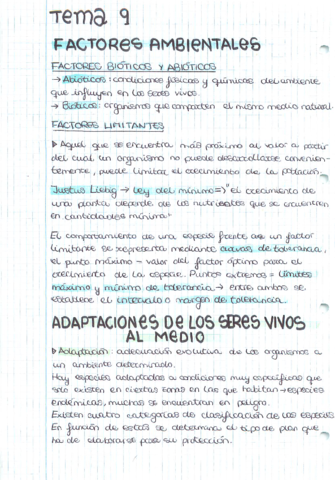 Tema 9
FACTORES AMBIENTALES
FACTORES BIÓTICOS Y ABIÓTICOS
→ Abióticos: condiciones físicas y químicas del ambiente
que influyen en los seres vivos.
→ Bióticos: organismos que comparten el mismo medio natural.
FACTORES LIMITANTES
▷ Aquel que se encuentra más próximo al valor a partir
del cual un organismo no puede desarrollarse convenien-
temente, puede limitar el crecimiento de la población.
Justus Liebig → Ley del mínimo => "el crecimiento de
una planta depende de los nutrientes que se encuentren
en cantidades mínima"
El comportamiento de una especie frente a un factor
limitante se representa mediante curvas de tolerancia,
el punto máximo = valor del factor óptimo para el
crecimiento de la especie. Puntos extremos = límites
máximo y mínimo de tolerancia → entre ambos se
establece el intervalo o margen de tolerancia.
ADAPTACIONES DE LOS SERES VIVOS
AL MEDIO
▷ Adaptación: adecuación evolutiva de los organismos a
un ambiente determinado.
Hay especies adaptadas a condiciones muy específicas que
solo existen en ciertas zonas en las que habitan → especies
endémicas, muchas se encuentran en peligro.
Existen cuatro categorías de clasificación de las especies
En función de estas se determina el tipo de plan que
ha de elaborarse para su protección.